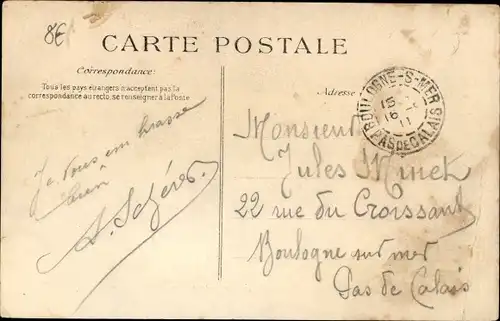 8€
CARTE POSTALE
Correspondance:
Tous les pays étrangers n'acceptent pas la
correspondance au recto, se renseigner à la Poste
Adresse
BOULOGNE-S-MER
PAS DE CALAIS
Je vous embrasse
bien
A.
Monsieur
Jules Minet
22 rue du Croissant
Boulogne sur mer
Pas de Calais